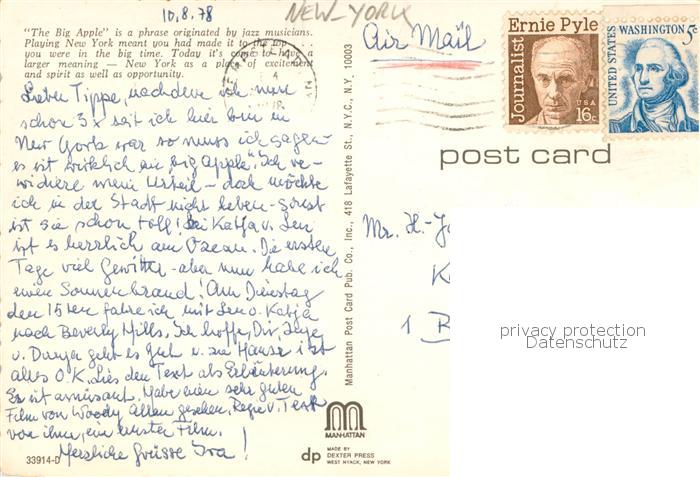 10.8.78
NEW-YORK
"The Big Apple" is a phrase originated by jazz musicians.
Playing New York meant you had made it to the top
you were in the big time. Today it's come to have a
larger meaning — New York as a place of excitement
and spirit as well as opportunity.
Air Mail
Ernie Pyle
Journalist
USA
16c
WASHINGTON 5c
UNITED STATES
post card
Lieber Tippe, nachdem ich nun
schon 3x seit ich hier bin in
New York war so muss ich sagen
es ist wirklich ein "big Apple". Ich re-
vidiere mein Urteil - doch möchte
ich in der Stadt nicht leben - sonst
ist sie schon toll! Bei Katja u. Len
ist es herrlich am Ozean. Die ersten
Tage viel Gewitter - aber nun habe ich
einen Sonnenbrand! Am Dienstag
den 15ten fahre ich mit Len u. Katja
nach Beverly Hills. Ich hoffe, Dir,
u. Dunja geht es gut u. zu Hause ist
alles O.K. Lies den Text als Erläuterung.
Es ist amüsant. Habe einen sehr guten
Film von Woody Allen gesehen. Regie u. Text
von ihm, ein ernster Film.
Herzliche Grüsse Ira!
Mr. H.-J
K
1 B
privacy protection
Datenschutz
Manhattan Post Card Pub. Co., Inc., 418 Lafayette St., N.Y.C., N.Y. 10003
MANHATTAN
dp
MADE BY
DEXTER PRESS
WEST NYACK, NEW YORK
33914-D